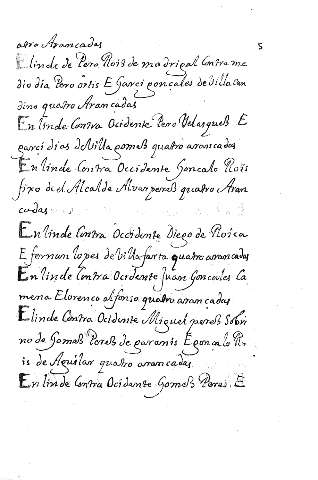 atro Arancadas
5
Elinde de Pero Rois de madrigal Contra me
dio dia Pero ortis E Garci gonçales de Villa can
dino quatro Arancadas
Enlinde Contra Ocidente Pero Velasques E
garci dias de Villa gomes quatro arancadas
Enlinde Contra Occidente Gonçalo Rois
fixo de el Alcalde Alvar peres quatro Aran
cadas
Enlinde Contra Occidente Diego de Roica
E fernan lopes de Villa farta quatro arancadas
Enlinde Contra Ocidente Juan Goncales Ca
mena E lorenco alfonso quatro arancadas
Elinde Contra Ocidente Miguel peres Sobri
no de Gomes Peres de paramis E gonçalo Pe
is de Aguilar quatro arancadas
Enlinde Contra Ocidante Gomes Peres. E